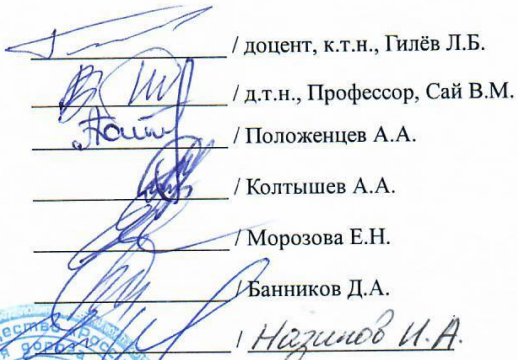 / доцент, к.т.н., Гилёв Л.Б.
/ д.т.н., Профессор, Сай В.М.
/ Положенцев А.А.
/ Колтышев А.А.
/ Морозова Е.Н.
/ Банников Д.А.
/ И.А.